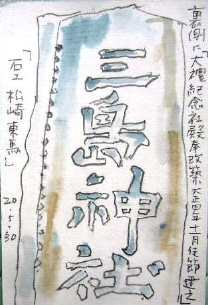 裏側に「大禮紀念社殿本改築大正四年十一月佳節建之
三島神社
「石工 松崎東馬」
20.5.30